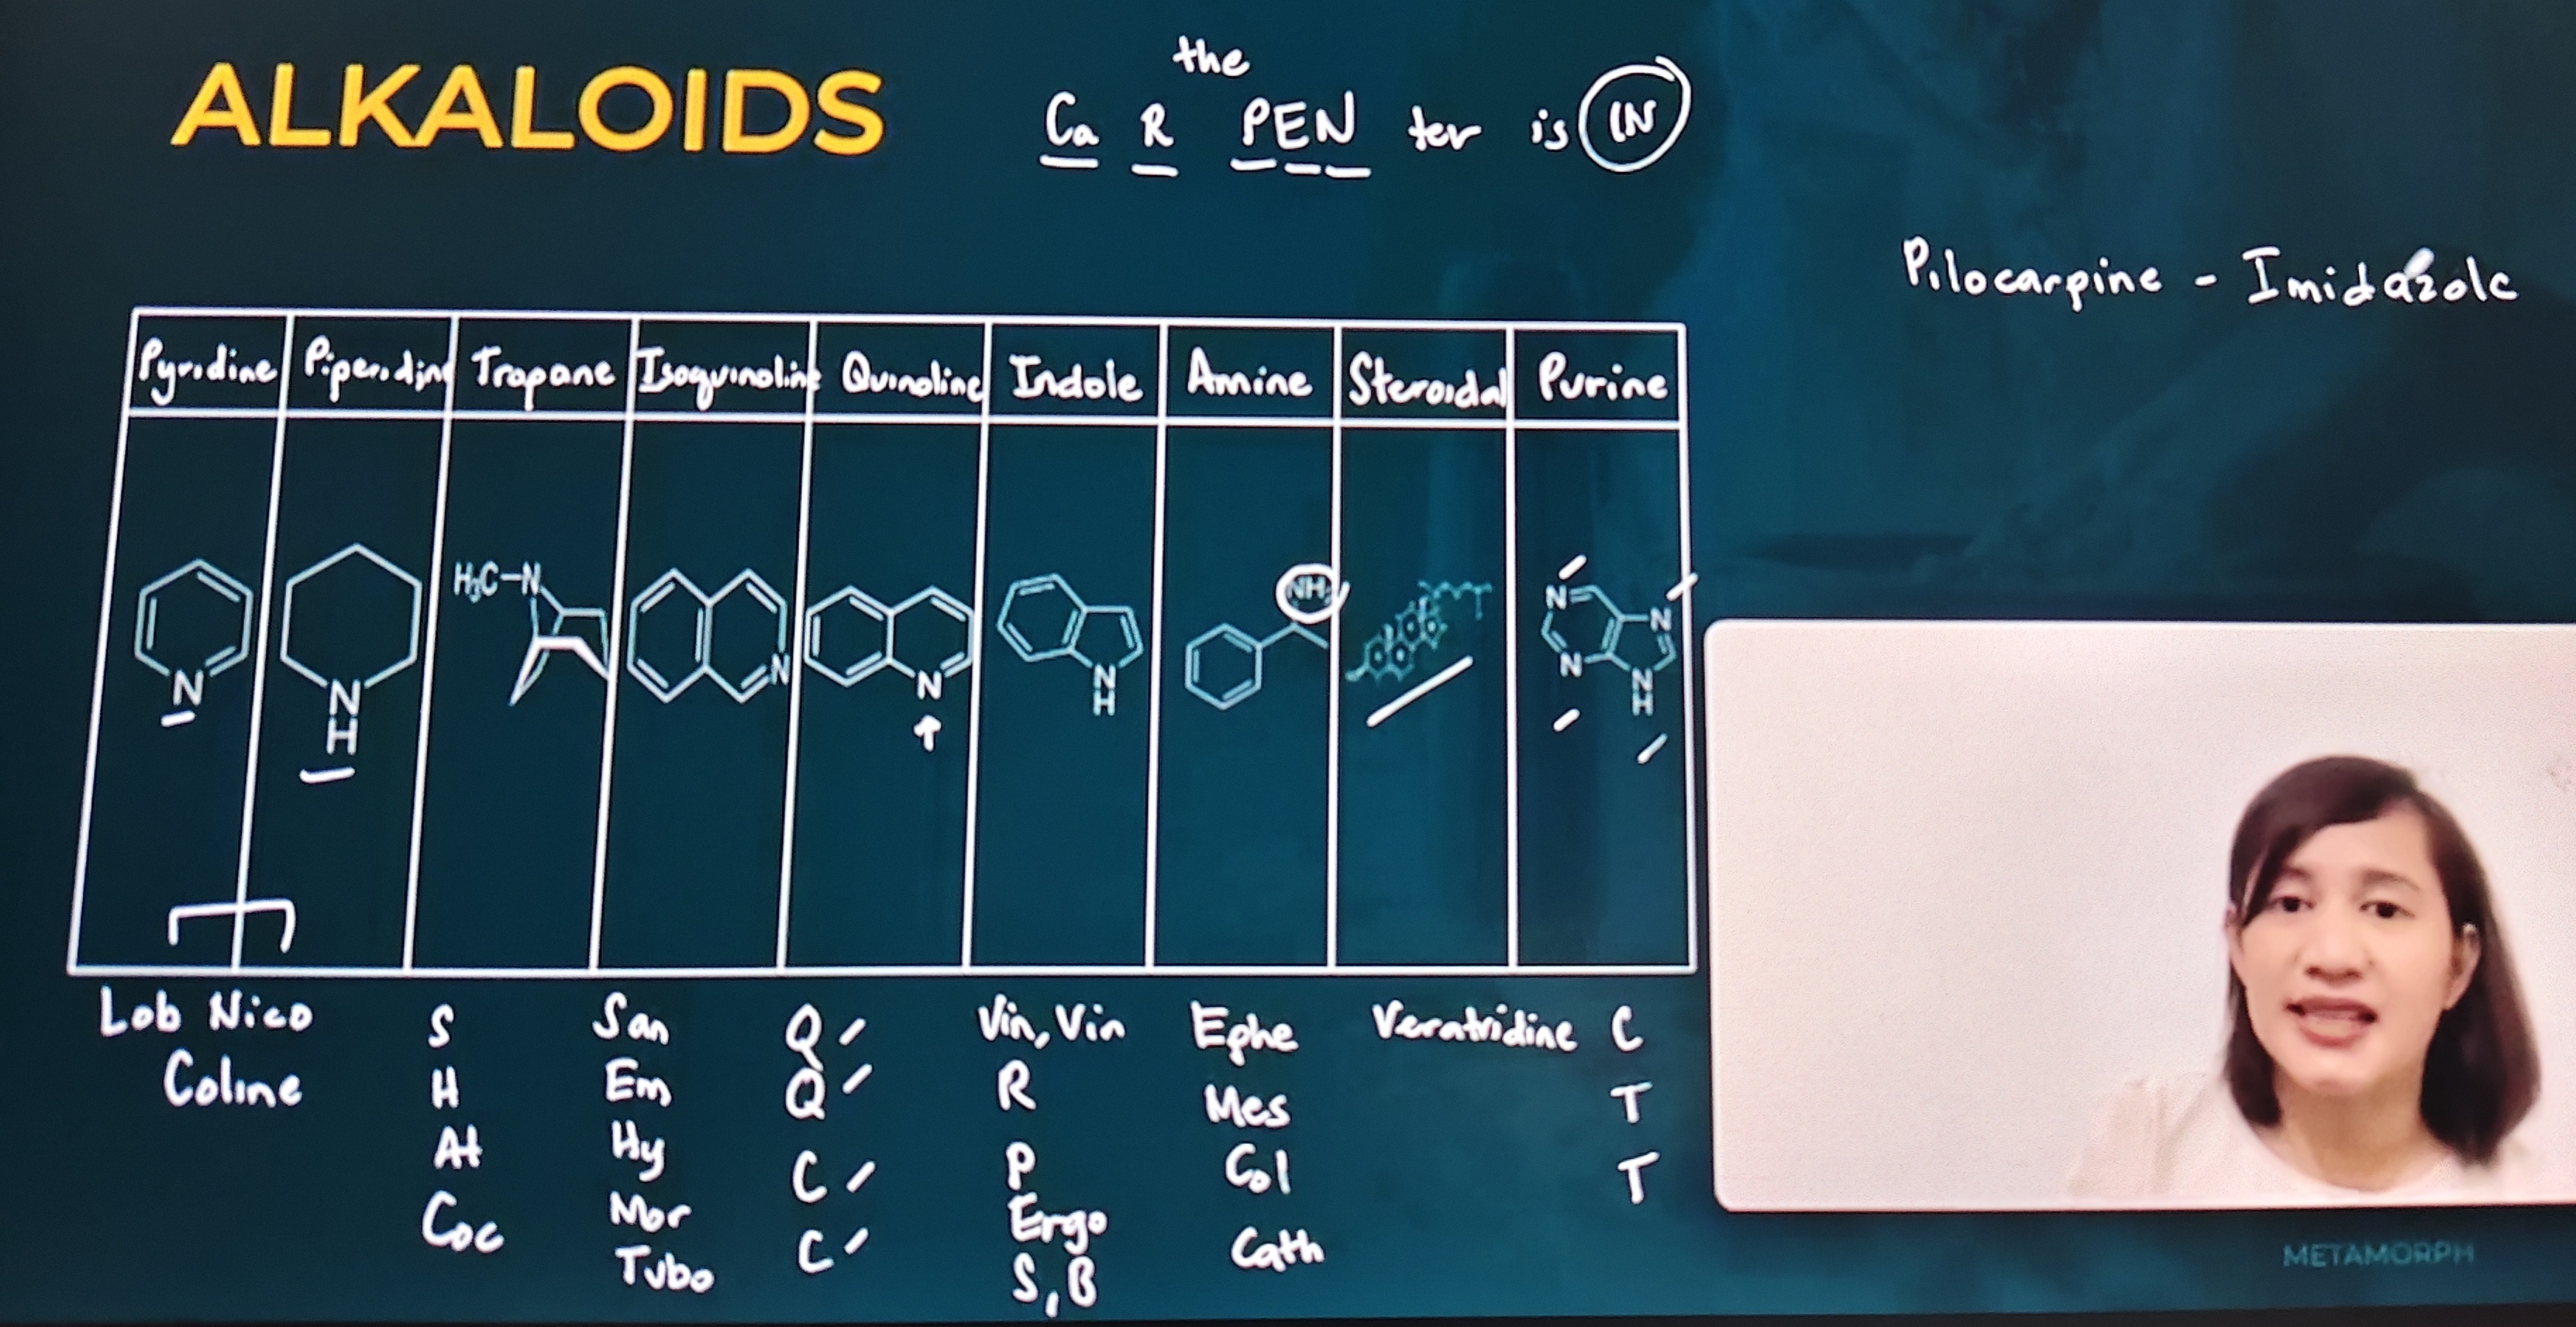 ALKALOIDS
the
Ca R PEN ter is IN
Pilocarpine - Imidazole
Pyridine Piperidine Trapane Isoquinoline Quinoline Indole Amine Steroidal Purine
H₃C-N NH₂ N N
N N N N N
H H H
Lob Nico S San Q Vin, Vin Ephe Veratridine C
Coline H Em Q R Mes T
At Hy C P Col T
Coc Mor C Ergo Cath
Tubo S, B
METAMORPH